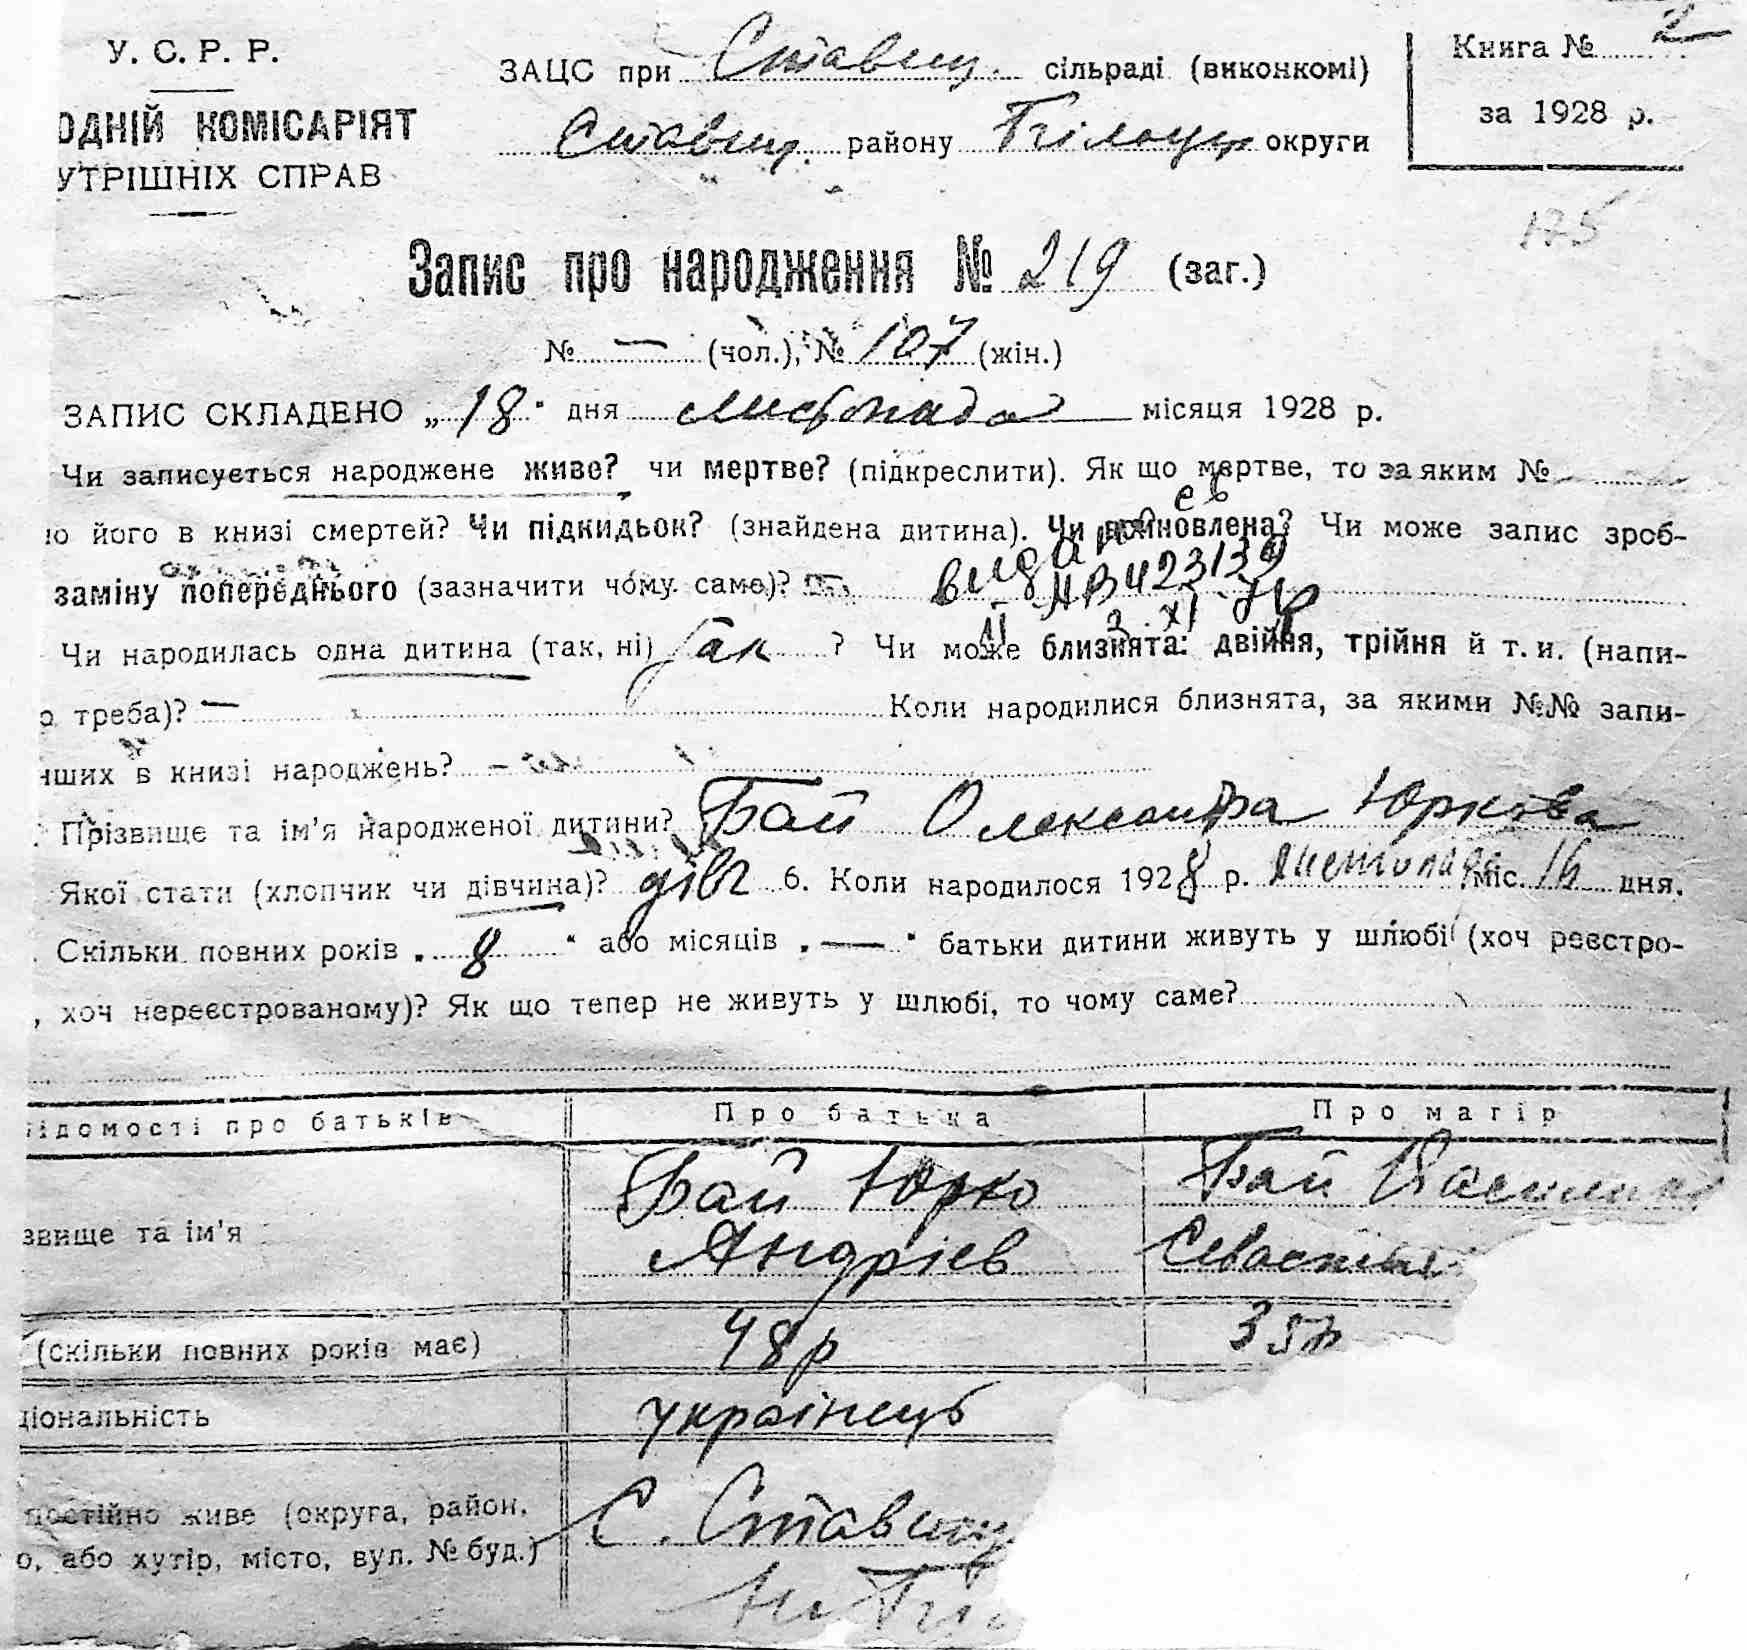 У. С. Р. Р.
ОДНІЙ КОМІСАРІЯТ
УТРІШНІХ СПРАВ
ЗАЦС при Ставищ. сільраді (виконкомі)
Ставищ. району Білоцер округи
Книга № 2
за 1928 р.
175
Запис про народження № 219 (заг.)
№ — (чол.), № 107 (жін.)
ЗАПИС СКЛАДЕНО „ 18 " дня листопада місяця 1928 р.
Чи записується народжене живе? чи мертве? (підкреслити). Як що мертве, то за яким №
ю його в книзі смертей? Чи підкидьок? (знайдена дитина). Чи всиновлена? Чи може запис зроб-
заміну попереднього (зазначити чому саме)?
АВ 423139
Чи народилась одна дитина (так, ні) Так ? Чи може близнята: двійня, трійня й т. и. (напи-
о треба)? — Коли народилися близнята, за якими №№ запи-
нших в книзі народжень? —
Прізвище та ім'я народженої дитини? Бай Олександра Юркова
Якої стати (хлопчик чи дівчина)? дівч 6. Коли народилося 1928 р. листопада міс. 16 дня.
Скільки повних років „ 8 " або місяців „ — " батьки дитини живуть у шлюбі (хоч реєстро-
, хоч нереєстрованому)? Як що тепер не живуть у шлюбі, то чому саме?
ідомості про батьків Про батька Про матір
звище та ім'я Бай Юрко Бай
Андріев Севастья
(скільки повних років має) 48р 35р
ціональність українець
постійно живе (округа, район, С. Ставищ
о, або хутір, місто, вул. № буд.)